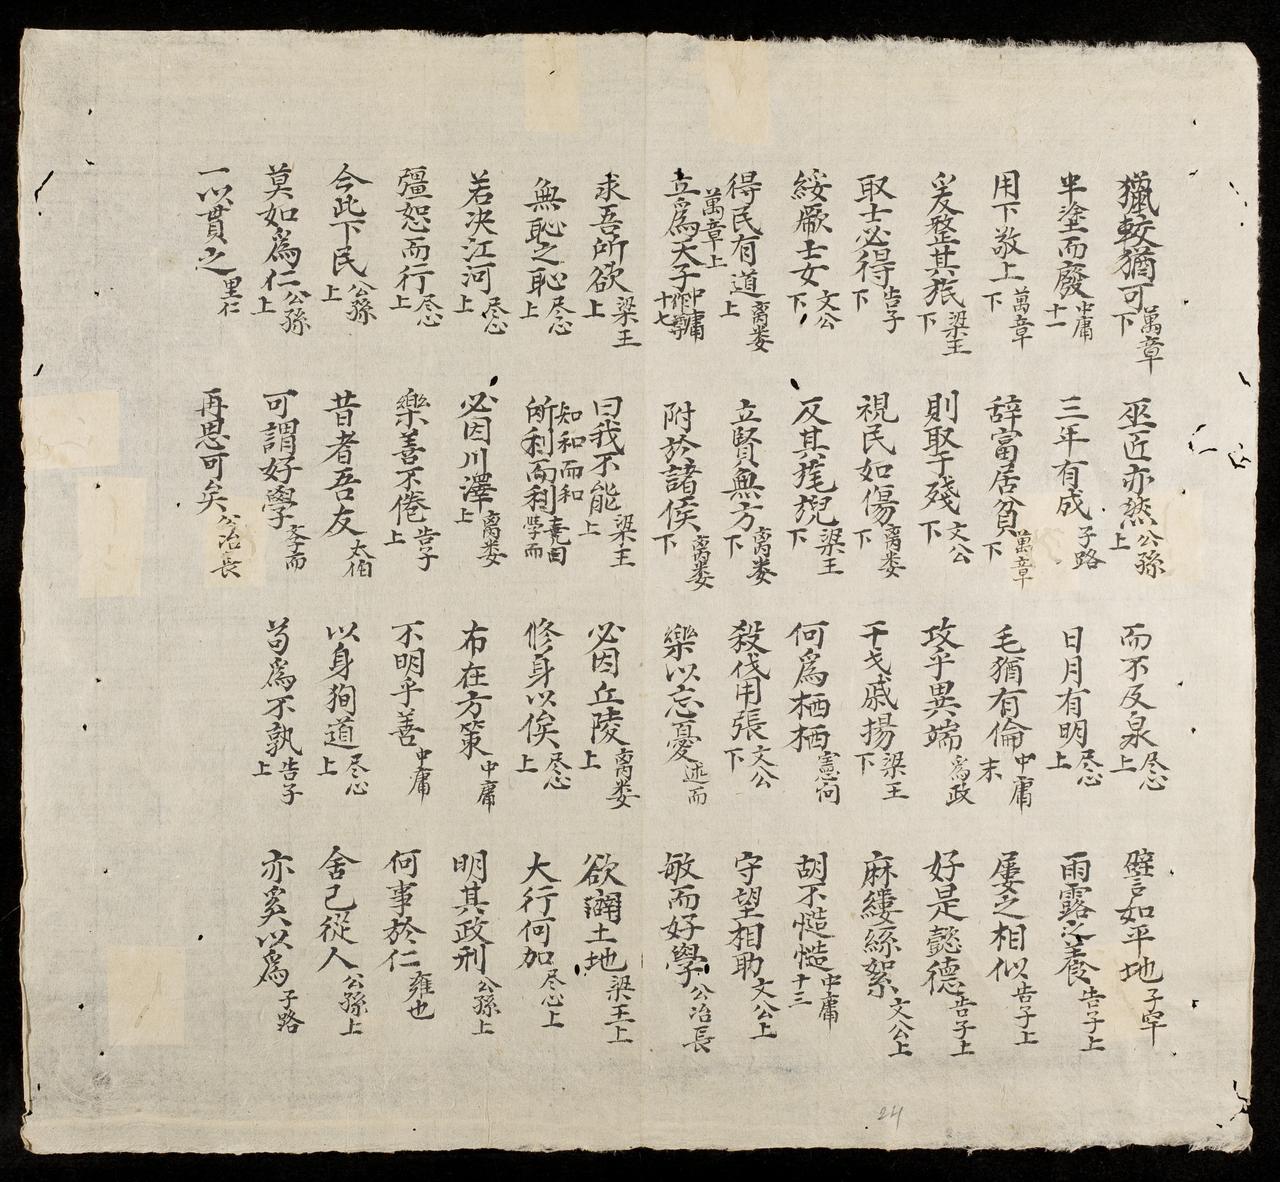 獵較猶可 萬章下 巫匠亦然 公孫上 而不反泉 尽心上 譬如平地 子罕
半塗而廢 中庸十一 三年有成 子路 日月有明 尽心上 雨露之養 告子上
用下敬上 萬章下 辞富居貧 萬章下 毛猶有倫 中庸末 屨之相似 告子上
爰整其旅 梁王下 則取于殘 文公下 攻乎異端 爲政 好是懿德 告子上
取士必得 告子下 視民如傷 离娄下 干戈戚揚 梁王下 麻縷絲絮 文公上
綏厥士女 文公下 反其旄倪 梁王下 何爲栖栖 憲问 胡不慥慥 中庸十三
得民有道 离娄上 立賢無方 离娄下 殺伐用張 文公下 守望相助 文公上
立爲天子 萬章上 中庸作尊十七 附於諸侯 离娄下 樂以忘憂 述而 敏而好學 公冶長
求吾所欲 梁王上 曰我不能 梁王上 必因丘陵 离娄上 欲闢土地 梁王上
無恥之恥 尽心上 知和而和 所利而利 堯曰 學而 修身以俟 尽心上 大行何加 尽心上
若决江河 尽心上 必因川澤 离娄上 布在方策 中庸 明其政刑 公孫上
彊恕而行 尽心上 樂善不倦 告子上 不明乎善 中庸 何事於仁 雍也
今此下民 公孫上 昔者吾友 太伯 以身狥道 尽心上 舍己從人 公孫上
莫如爲仁 公孫上 可謂好學 学而 苟爲不孰 告子上 亦奚以爲 子路
一以貫之 里仁 再思可矣 公冶長
24